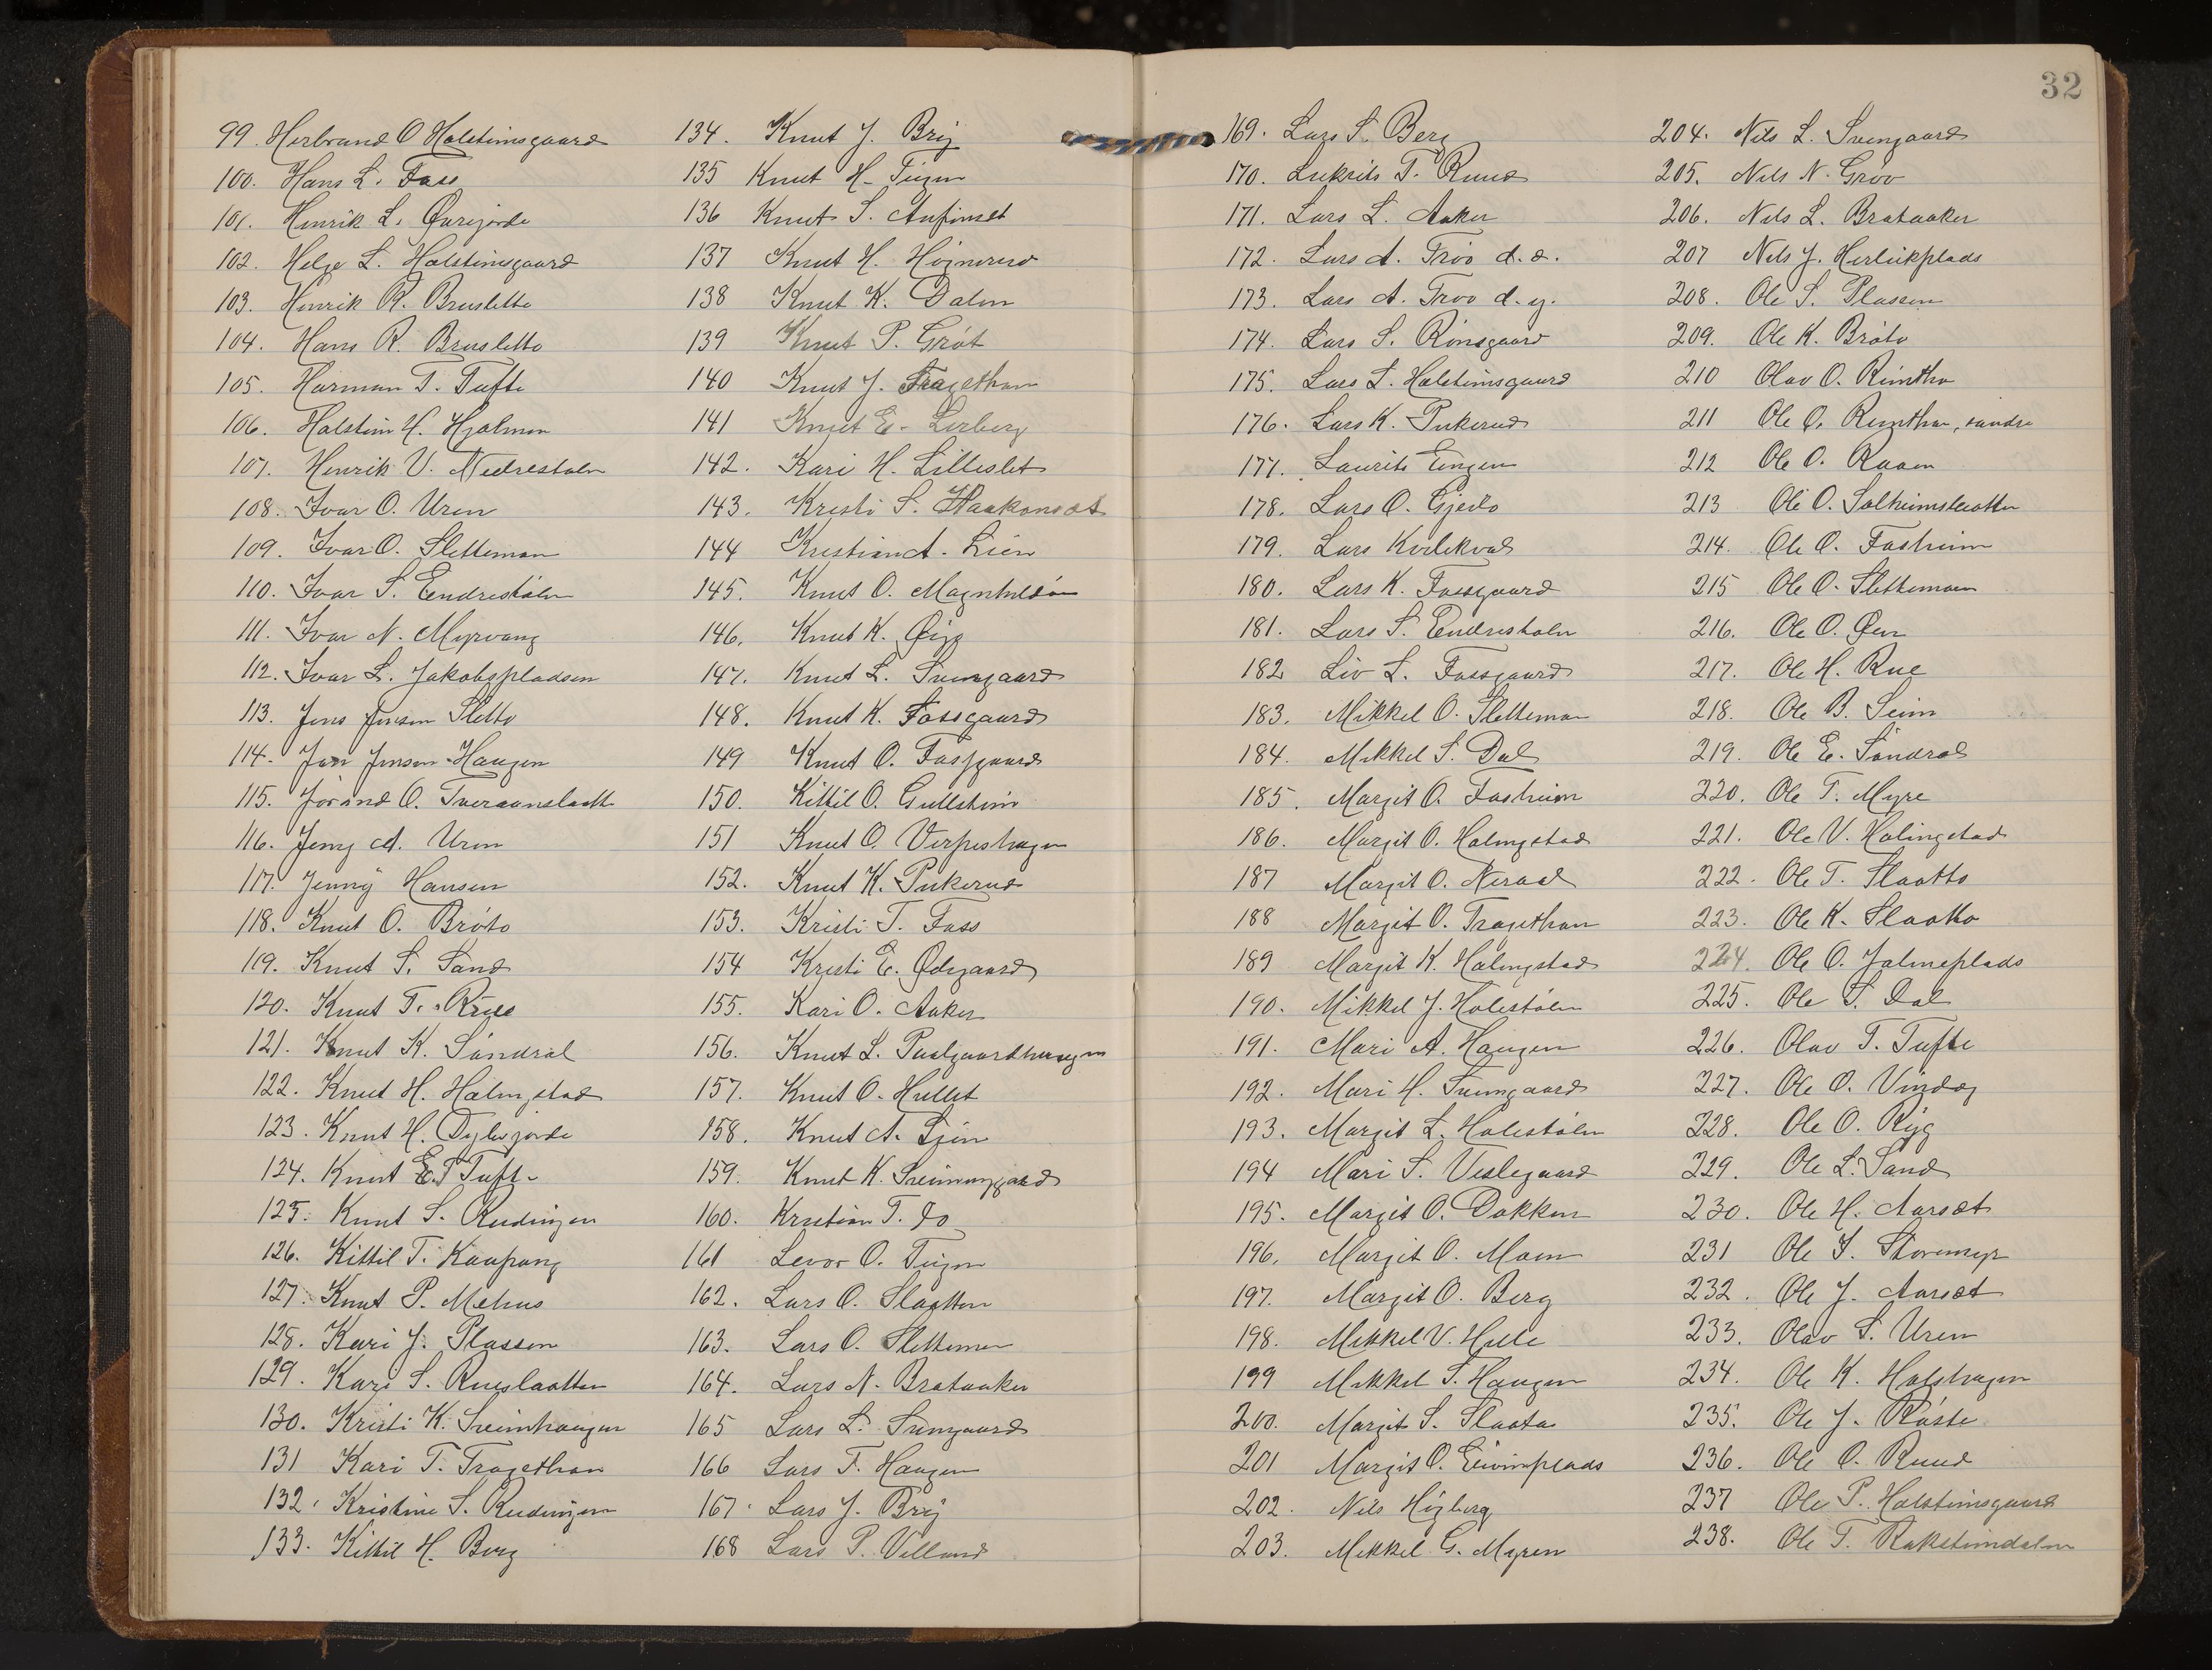 32
99. Herbrand O Halstensgaard
100. Hans L. Foss
101. Henrik L. Øvrejorde
102. Helge L. Halstensgaard
103. Henrik R. Brusletto
104. Hans R. Brusletto
105. Harman T. Tufte
106. Halstein H. Hjalmen
107. Henrik V. Nedrestølen
108. Ivar O. Uren
109. Ivar O. Sletteman
110. Ivar S. Endrestølen
111. Ivar N. Myrvang
112. Ivar L. Jakobspladsen
113. Jens Jensen Sletto
114. Jon Jensen Haugen
115. Jørand O. Tveraanslaatt
116. Jeny A. Uren
117. Jenny Hansen
118. Knut O. Bröto
119. Knut S. Sand
120. Knut T. Rue
121. Knut K. Söndral
122. Knut H. Halingstad
123. Knut H. Dylesjorde
124. Knut E. T Tuft
125. Knut S. Rudningen
126. Kittil T. Kaupang
127. Knut P. Mehus
128. Kari J. Plassen
129. Kari S. Rueslaatten
130. Kristi K. Sveinhaugen
131 Kari T. Tragethon
132. Kristine S. Rudningen
133. Kittil H. Berg
134. Knut J. Brig
135 Knut H. Teigen
136 Knut S. Anfinset
137 Knut H. Högnerud
138 Knut K. Dalen
139 Knut P. Gröt
140 Knut J. Tragethon
141 Knut E. Lerberg
142. Kari H. Lilleslet
143. Kristi S. Haakonsæt
144 Kristian A. Lien
145. Knut O. Magnhildöen
146. Knut K. Öyg
147. Knut L. Svengaard
148. Knut K. Fossgaard
149 Knut O. Fossgaard
150. Kittil O. Gullstein
151 Knut O. Verpeshagen
152. Knut K. Pukerud
153. Kristi T. Foss
154 Kristi E. Ødegaard
155. Kari O. Aaker
156. Knut L. Paalgaardhaugen
157. Knut O. Hullet
158. Knut A. Lien
159. Knut K. Sveinunggaard
160. Kristian T. Jo
161 Levor O. Teigen
162. Lars O. Slaatten
163. Lars O. Sletteman
164. Lars N. Brataaker
165 Lars L. Svengaard
166 Lars T. Haugen
167. Lars J. Brig
168 Lars P. Villand
169. Lars S. Berg
170. Lukris T. Ruud
171. Lars L. Aaker
172. Lars A. Tröo d.e.
173. Lars A. Tröo d.y.
174. Lars S. Rensgaard
175. Lars L. Halstensgaard
176. Lars K. Pukerud
177. Laurits Engen
178. Lars O. Gjeilo
179. Lars Kvilekval
180. Lars K. Fossgaard
181. Lars S. Endrestølen
182 Liv L. Fossgaard
183. Mikkel O. Sletteman
184. Mikkel S. Dal
185. Margit O. Fosheim
186. Margit O. Halingstad
187 Margit O. Neraal
188 Margit O. Tragethon
189 Margit K. Halingstad
190. Mikkel J. Holestölen
191. Mari A. Haugen
192. Mari H. Svengaard
193. Margit L. Holestölen
194 Mari S. Veslegaard
195. Margit O. Dokken
196. Margit O. Moen
197. Margit O. Berg
198. Mikkel V. Hulle
199 Mikkel S. Haugen
200. Margit S. Slaata
201 Margit O. Eivindplads
202. Nils Högberg
203. Mikkel G. Myren
204. Nils L. Svengaard
205. Nils N. Gröv
206. Nils L. Brataaker
207 Nils J. Herleikplads
208. Ole S. Plassen
209. Ole K. Bröto
210 Olav O. Reintho
211 Ole O. Reinthon, søndre
212 Ole O. Raaen
213 Ole O. Solheimslaatten
214. Ole O. Fosheim
215 Ole O. Sletteman
216. Ole O. Øen
217. Ole H. Rue
218. Ole B. Seim
219. Ole E. Söndral
220. Ole T. Myre
221. Ole V. Halingstad
222. Ole T. Slaatto
223. Ole K. Slaatto
224. Ole O. Jalmeplads
225. Ole S. Dal
226. Olav T. Tufte
227. Ole O. Vindeg
228. Ole O. Ryg
229. Ole L. Sand
230. Ole H. Aarsæt
231 Ole S. Storemyr
232. Ole J. Aarsæt
233. Olav S. Uren
234. Ole K. Halshagen
235. Ole J. Röste
236. Ole O. Ruud
237 Ole P. Halstensgaard
238. Ole T. Raksteindalen